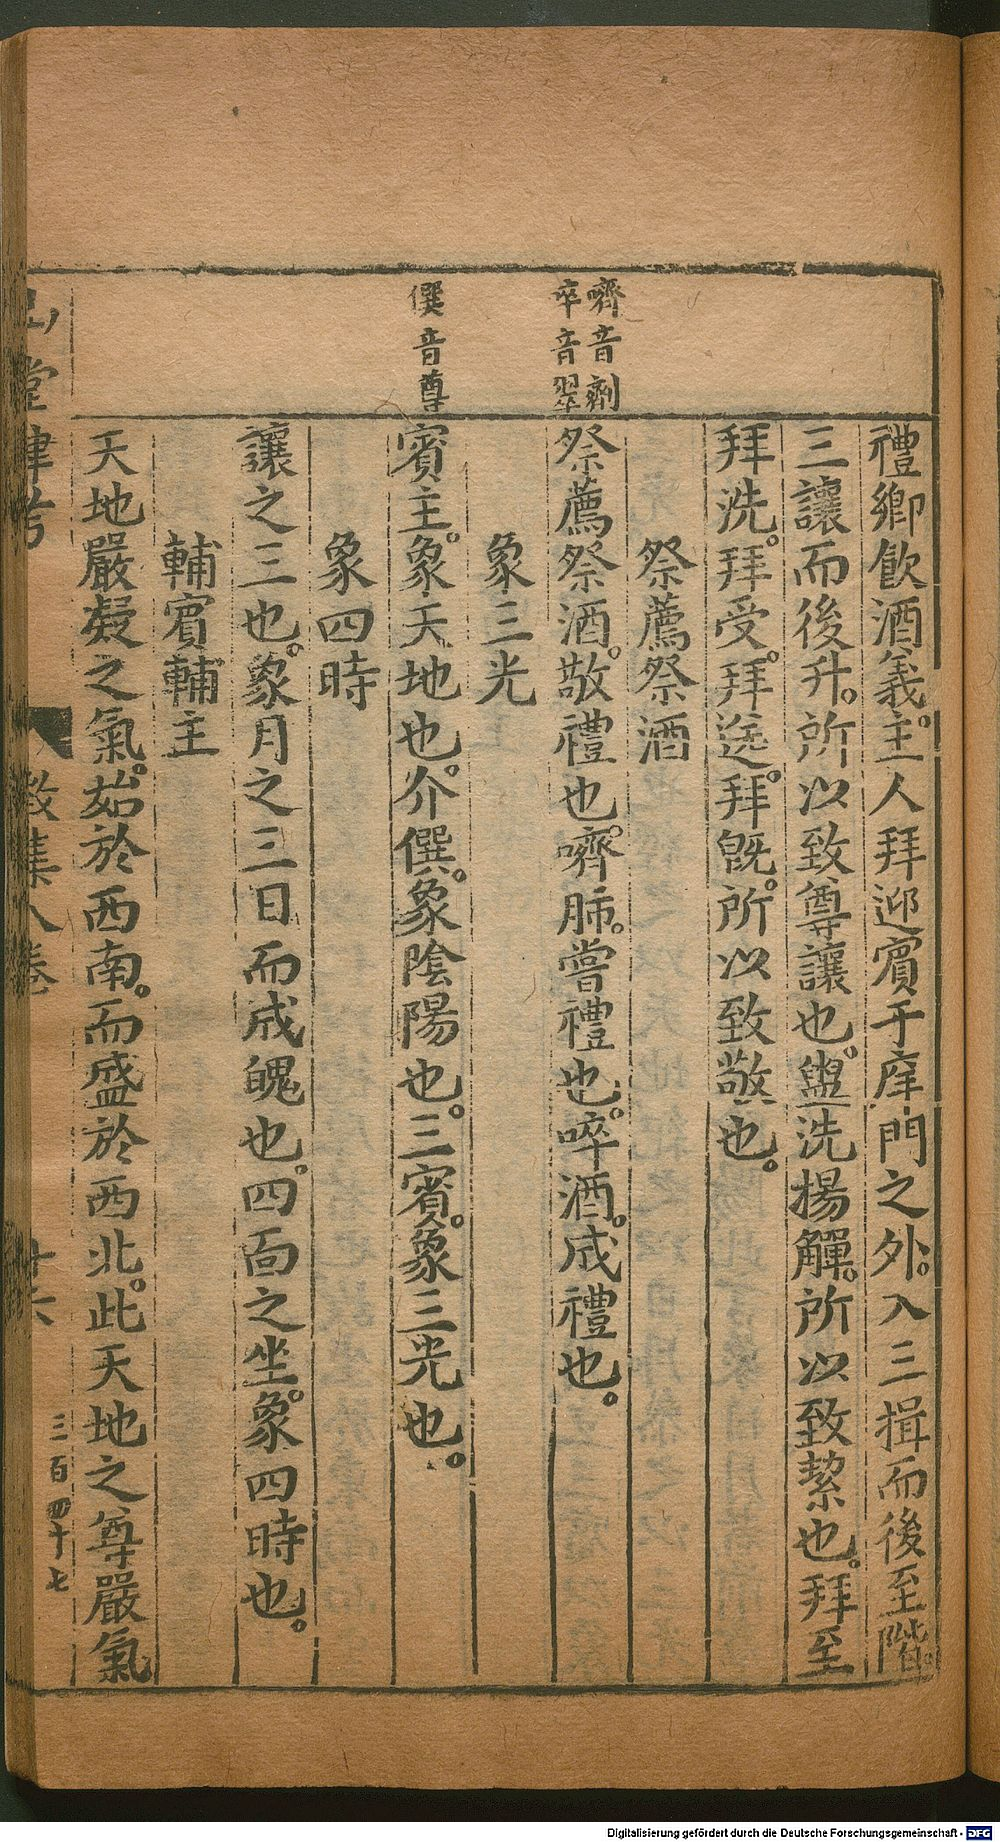 嚌音劑
啐音翠
僎音尊
禮鄉飲酒義。主人拜迎賓于庠門之外。入三揖而後至階。
三讓而後升。所以致尊讓也。盥洗揚觶。所以致絜也。拜至
拜洗。拜受。拜送。拜旣。所以致敬也。
祭薦祭酒
祭薦祭酒。敬禮也。嚌肺。嘗禮也。啐酒。成禮也。
象三光
賓主。象天地也。介僎。象陰陽也。三賓。象三光也。
象四時
讓之三也。象月之三日而成魄也。四面之坐。象四時也。
輔賓輔主
天地嚴凝之氣。始於西南。而盛於西北。此天地之尊嚴氣
山堂肆考
徵集八卷
三百四十七
Digitalisierung gefördert durch die Deutsche Forschungsgemeinschaft - DFG